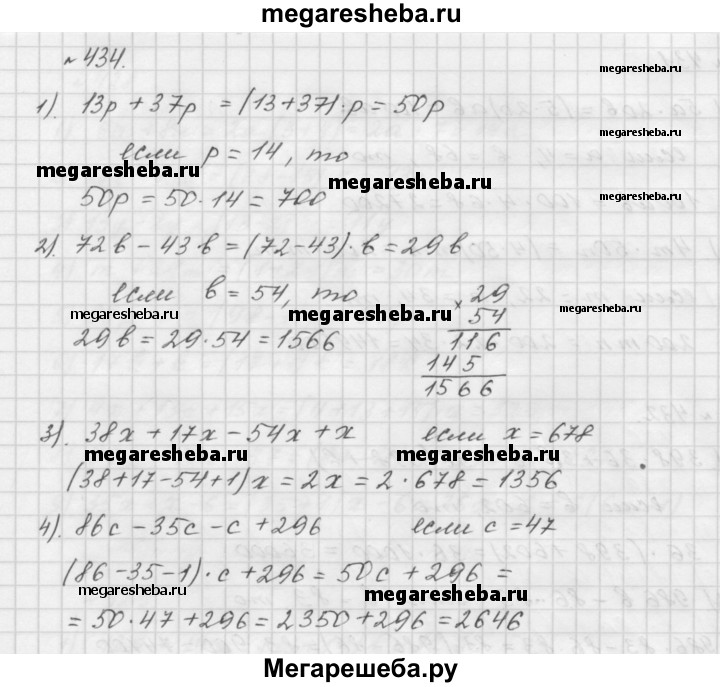 megaresheba.ru
№ 434.
megaresheba.ru
1). 13p + 37p = (13+37)·p = 50p
если p = 14, то
megaresheba.ru megaresheba.ru
50p = 50·14 = 700
megaresheba.ru
2). 72в − 43в = (72−43)·в = 29в
если в = 54, то
× 29
54
megaresheba.ru megaresheba.ru megaresheba.ru
29в = 29·54 = 1566
116
145
1566
3). 38x + 17x − 54x + x если x = 678
megaresheba.ru megaresheba.ru
(38+17−54+1)x = 2x = 2·678 = 1356
4). 86c − 35c − c + 296 если c = 47
(86−35−1)·c + 296 = 50c + 296 =
megaresheba.ru megaresheba.ru
= 50·47 + 296 = 2350 + 296 = 2646
Мегарешеба.ру